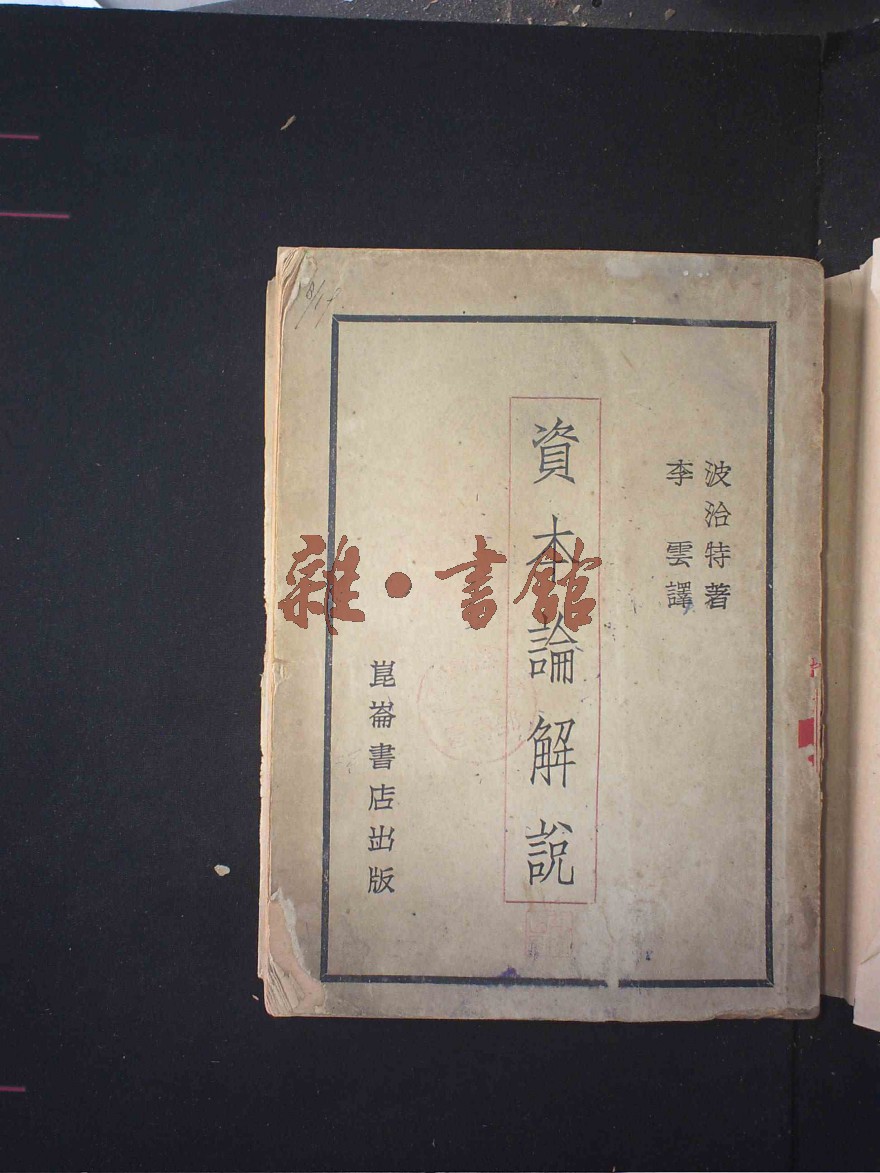 波治特著
李雲譯
資本論解說
崑崙書店出版
雜·書館